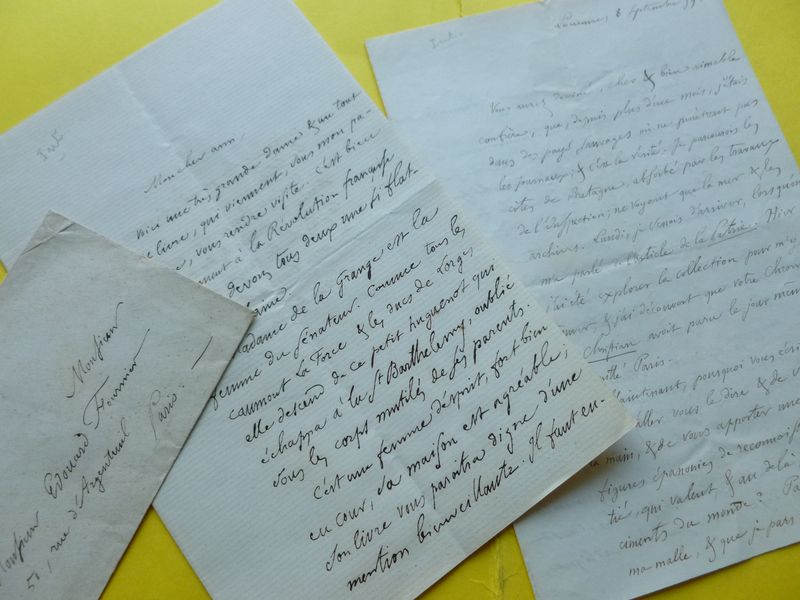 Monsieur
Monsieur Edouard Fournier
50, rue d'Argenteuil Paris.
Mon cher ami,
Voici une très grande dame & un tout
livre, qui viennent, vous mon pa-
vous rendre visite. C'est bien
à la Révolution française
devons tous deux une si flat-
Madame de la Grange est la
femme du Sénateur. Comme tous les
Caumont La Force & les ducs de Lorges
elle descend de ce petit huguenot qui
échappa à la St Barthelemy, oublié
sous les corps mutilés de ses parents.
C'est une femme d'esprit, fort bien
en cour, sa maison est agréable,
son livre vous paraîtra digne d'une
mention bienveillante. Il faut en-
8 septembre
Vous avez deviné, cher & bien aimable
confrère, que, depuis plus d'un mois, j'étais
dans des pays sauvages où ne pénètrent pas
les journaux; & c'est la vérité: Je parcourais les
côtes de Bretagne, absorbé par les travaux
de l'Inspection; ne voyant que la mer & les
archives. Lundi, je venais d'arriver, lorsqu'on
m'a parlé de l'article de la Patrie: Hier
j'ai été explorer la collection pour m'y
& j'ai découvert que votre Chron
Christian avoit paru le jour mêm
quitté Paris.
Maintenant, pourquoi vous écri
aller vous le dire & de v
main, & de vous apporter une
figures épanouies de reconnaiss
tié, qui valent, & au delà
ciments du monde? Pa
ma malle, & que je pars